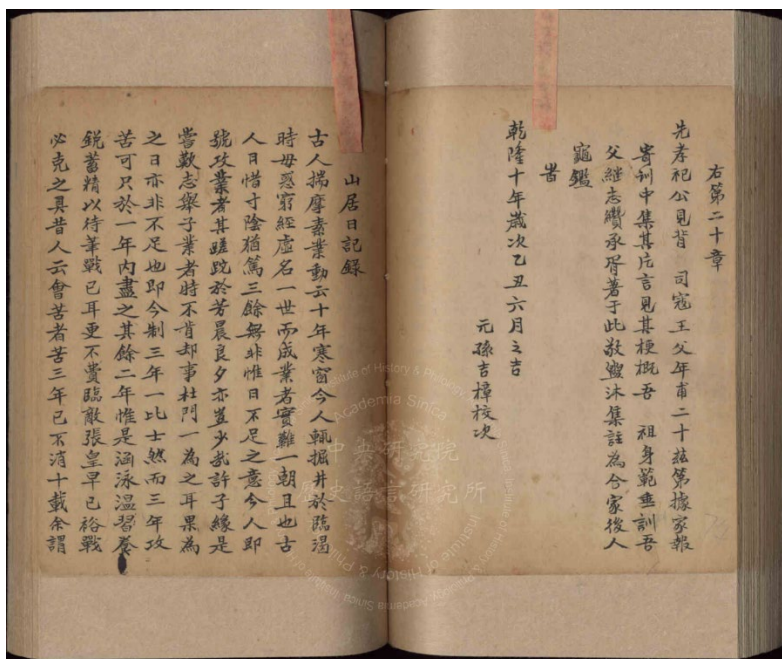 右第二十章
先孝祀公見背 司寇王父年甫二十茲第據家報
寄訓中集其片言見其梗概吾 祖身範垂訓吾
父繼志纘承胥著于此敬盥沐集註為合家後人
龜鑑
旹
乾隆十年歲次乙丑六月之吉
元孫吉樟校次
山居日記錄
古人揣摩素業動云十年寒窗今人輒掘井於臨渴
時毋惑窮經虛名一世而成業者實難一朝且也古
人日惜寸陰猶篤三餘無非惟日不足之意今人即
號攻業者其蹉跎於芳晨良夕亦豈少哉許子緣是
嘗歎志舉子業者時不肯却事杜門一為之耳果為
之日亦非不足也即今制三年一比士然而三年攻
苦可只於一年內盡之其餘二年惟是涵泳溫習養
銳蓄精以待筆戰已耳更不費臨敵張皇早已裕戰
必克之具昔人云會苦者苦三年已不消十載余謂
中央研究院
歷史語言研究所
Institute of History & Philology
Academia Sinica